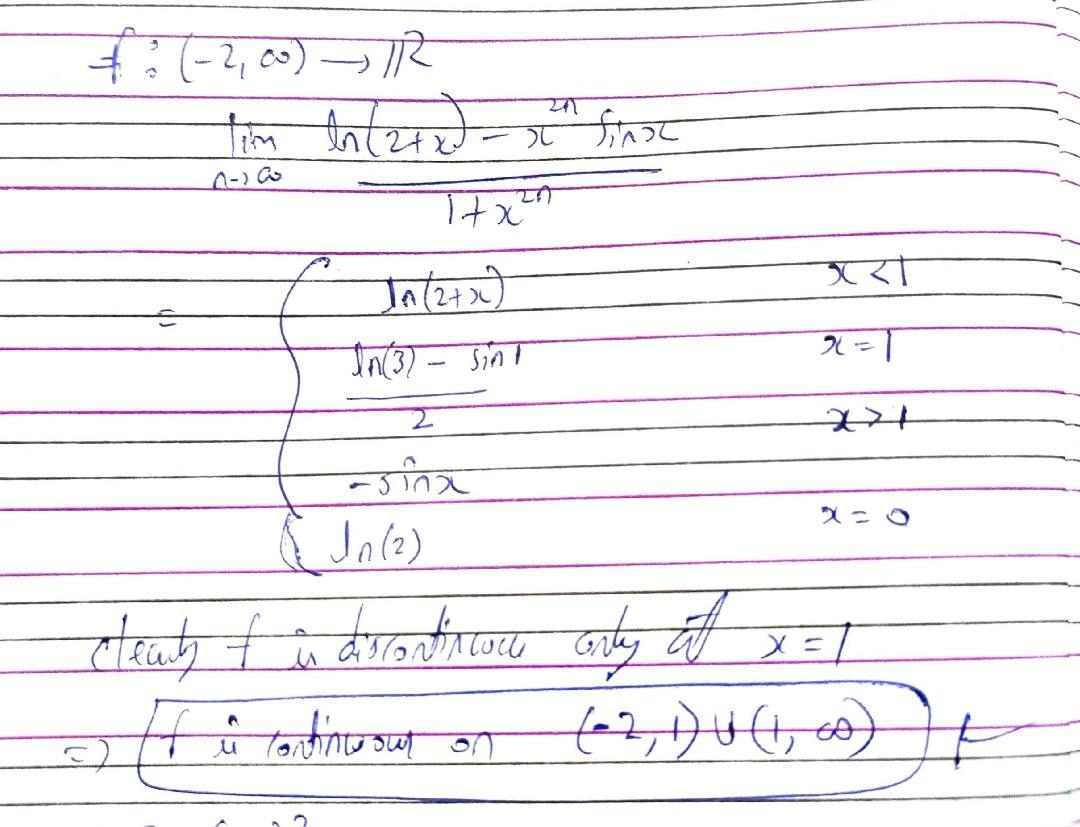 f : (-2, ∞) → ℝ
lim n→∞ (ln(2+x) - x^{2n} sinx) / (1+x^{2n})
= { ln(2+x) x < 1
(ln(3) - sin1) / 2 x = 1
-sinx x > 1
ln(2) x = 0
clearly f is discontinuous only at x = 1
⇒ f is continuous on (-2, 1) ∪ (1, ∞)